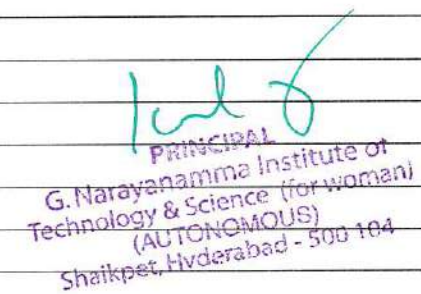 PRINCIPAL
G. Narayanamma Institute of
Technology & Science (for woman)
(AUTONOMOUS)
Shaikpet, Hyderabad - 500 104